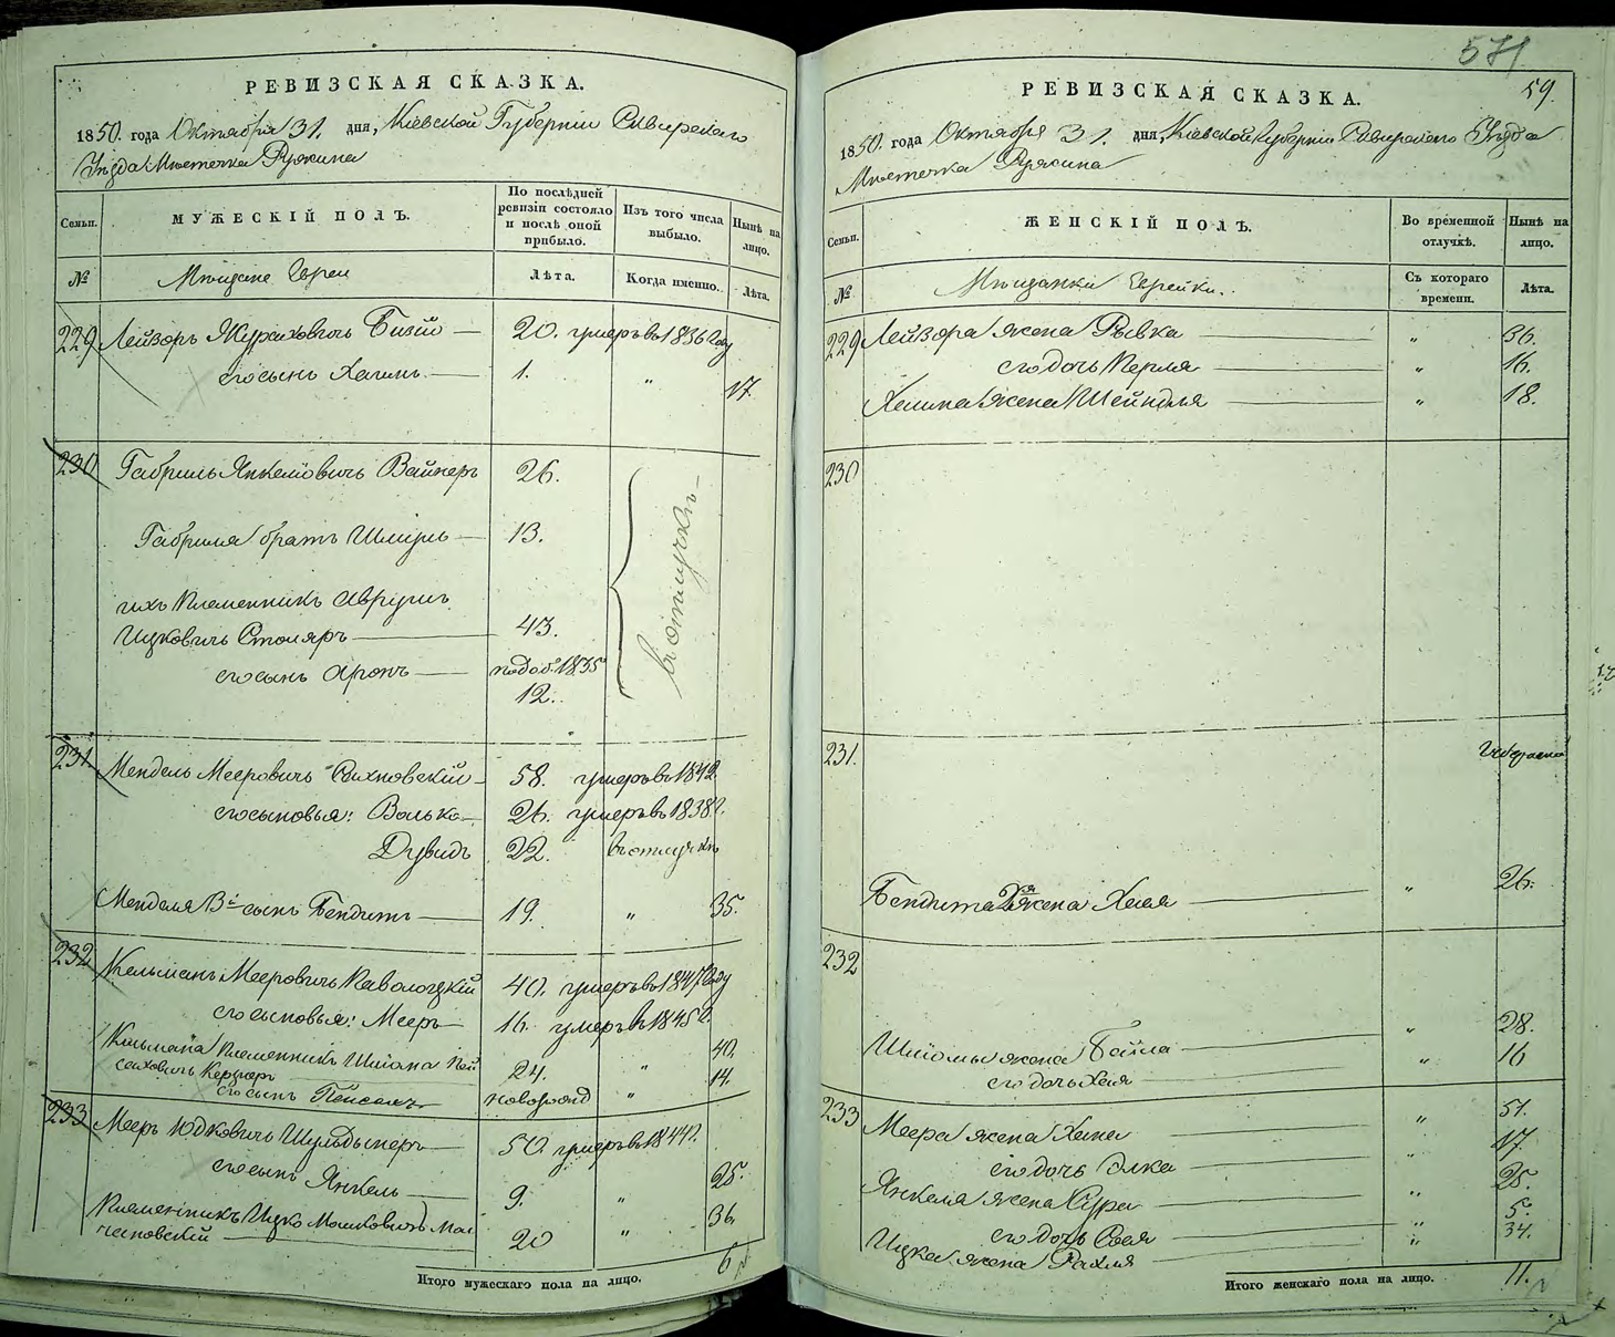 РЕВИЗСКАЯ СКАЗКА.
1850. года Октября 31. дня, Кіевской Губерніи Сквирскаго
Уѣзда Мѣстечка Ружина
Семьи.
МУЖЕСКІЙ ПОЛЪ.
По послѣдней ревизіи состояло и послѣ оной прибыло.
Изъ того числа выбыло.
Нынѣ на лицо.
№
Мѣщане Евреи
Лѣта.
Когда именно.
Лѣта.
229 Лейзоръ Мурахович Бизій — 20. умеръ въ 1836 году
его сынъ Хаимъ — 1. " 17.
230 Габриль Янкелiовичъ Вайнеръ 26.
Габриля братъ Шмуль — 13.
ихъ племенникъ Аврумъ
Ицковичъ Столяръ — 43.
его сынъ Аронъ — 1835
12.
въ отлучкѣ —
231. Мендель Мееровичъ — 58. умеръ въ 1842.
его сыновья: Волько — 26. умеръ въ 1838 г.
Дувидъ 22. въ отлучкѣ
Менделя 3й сынъ Бендитъ — 19. " 35.
232 Кельманъ Мееровичъ Паволоцкій 40. умеръ въ 1847 году
его сыновья: Мееръ — 16. умеръ въ 1845 г.
Кельмана племенникъ Шлiома Пей
саховичъ Кержнеръ — 24. " 40.
его сынъ Пейсахъ — новорожд " 14.
233 Мееръ Юдковичъ — 50. умеръ въ 1844 г.
его сынъ Янкель — 9. " 25.
племенникъ Ицко Мошковичъ
20 " 36.
Итого мужескаго пола на лицо. 6
571
59.
РЕВИЗСКАЯ СКАЗКА.
1850. года Октября 31. дня, Кіевской Губерніи Сквирскаго Уѣзда
Мѣстечка Ружина
Семьи.
ЖЕНСКІЙ ПОЛЪ.
Во временной отлучкѣ.
Нынѣ на лицо.
№
Мѣщанки Еврейки.
Съ котораго времени.
Лѣта.
229 Лейзора жена Рывка — " 36.
его дочь Перля — " 16.
Хаима жена Шейндля — " 18.
230
231.
Бендита 2я жена Хая — " 26.
232
Шлiомы жена Бейла — " 28.
его дочь Хая — " 16
233 Меера жена Хана — " 51.
его дочь Элка — " 17.
Янкеля жена Сура — " 25.
его дочь Сося — " 5.
Ицка жена Рахля — " 34.
Итого женскаго пола на лицо. 11.